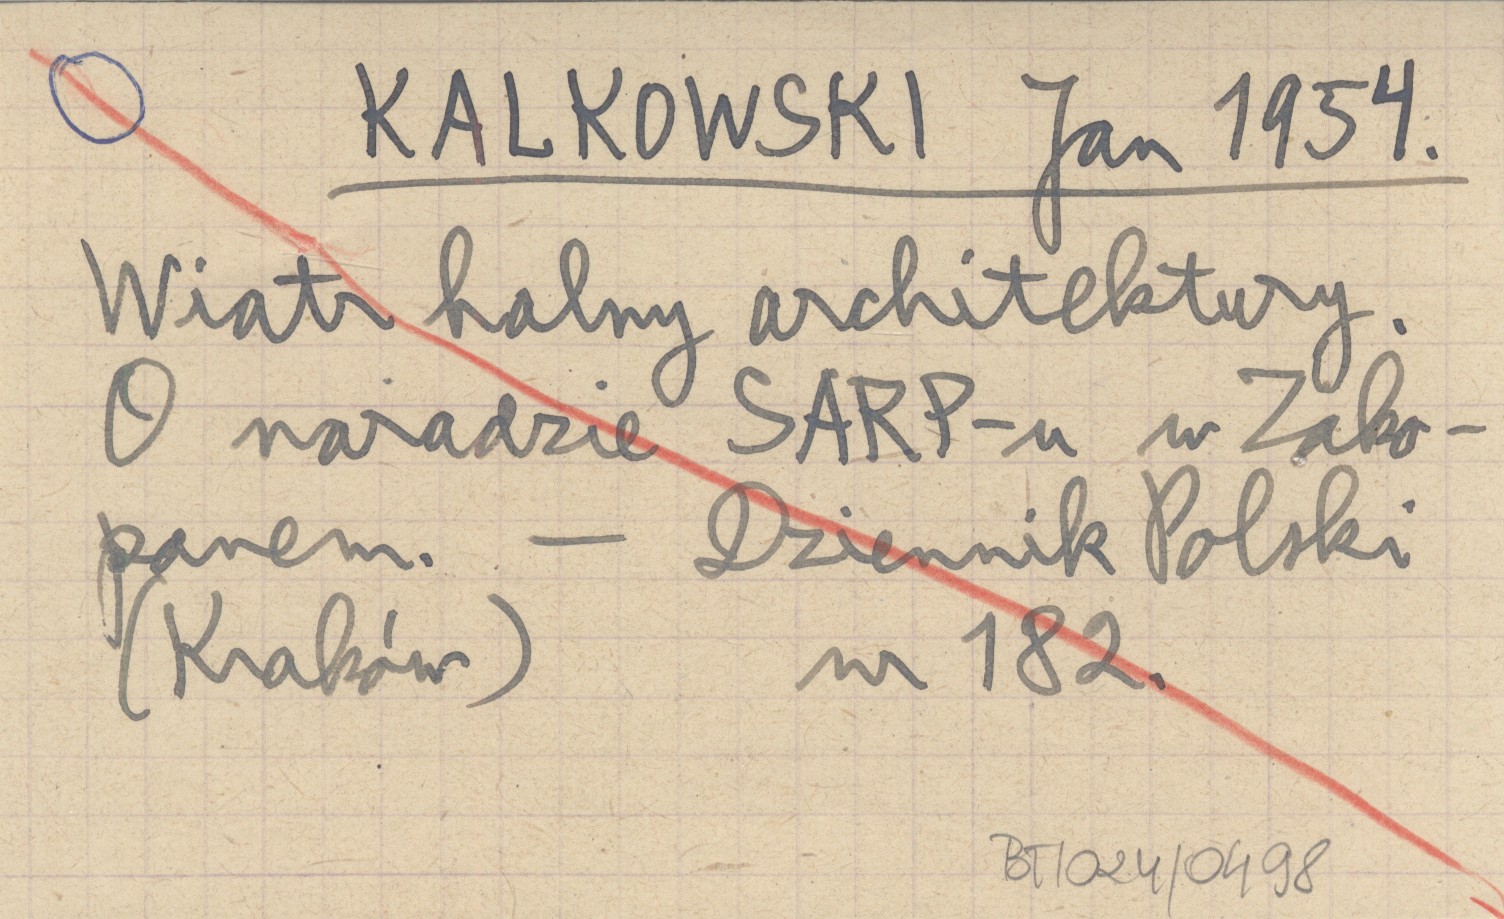 KALKOWSKI Jan 1954.
Wiatr halny architektury.
O naradzie SARP-u w Zako-
panem. — Dziennik Polski
(Kraków) nr 182.
BT/024/0498